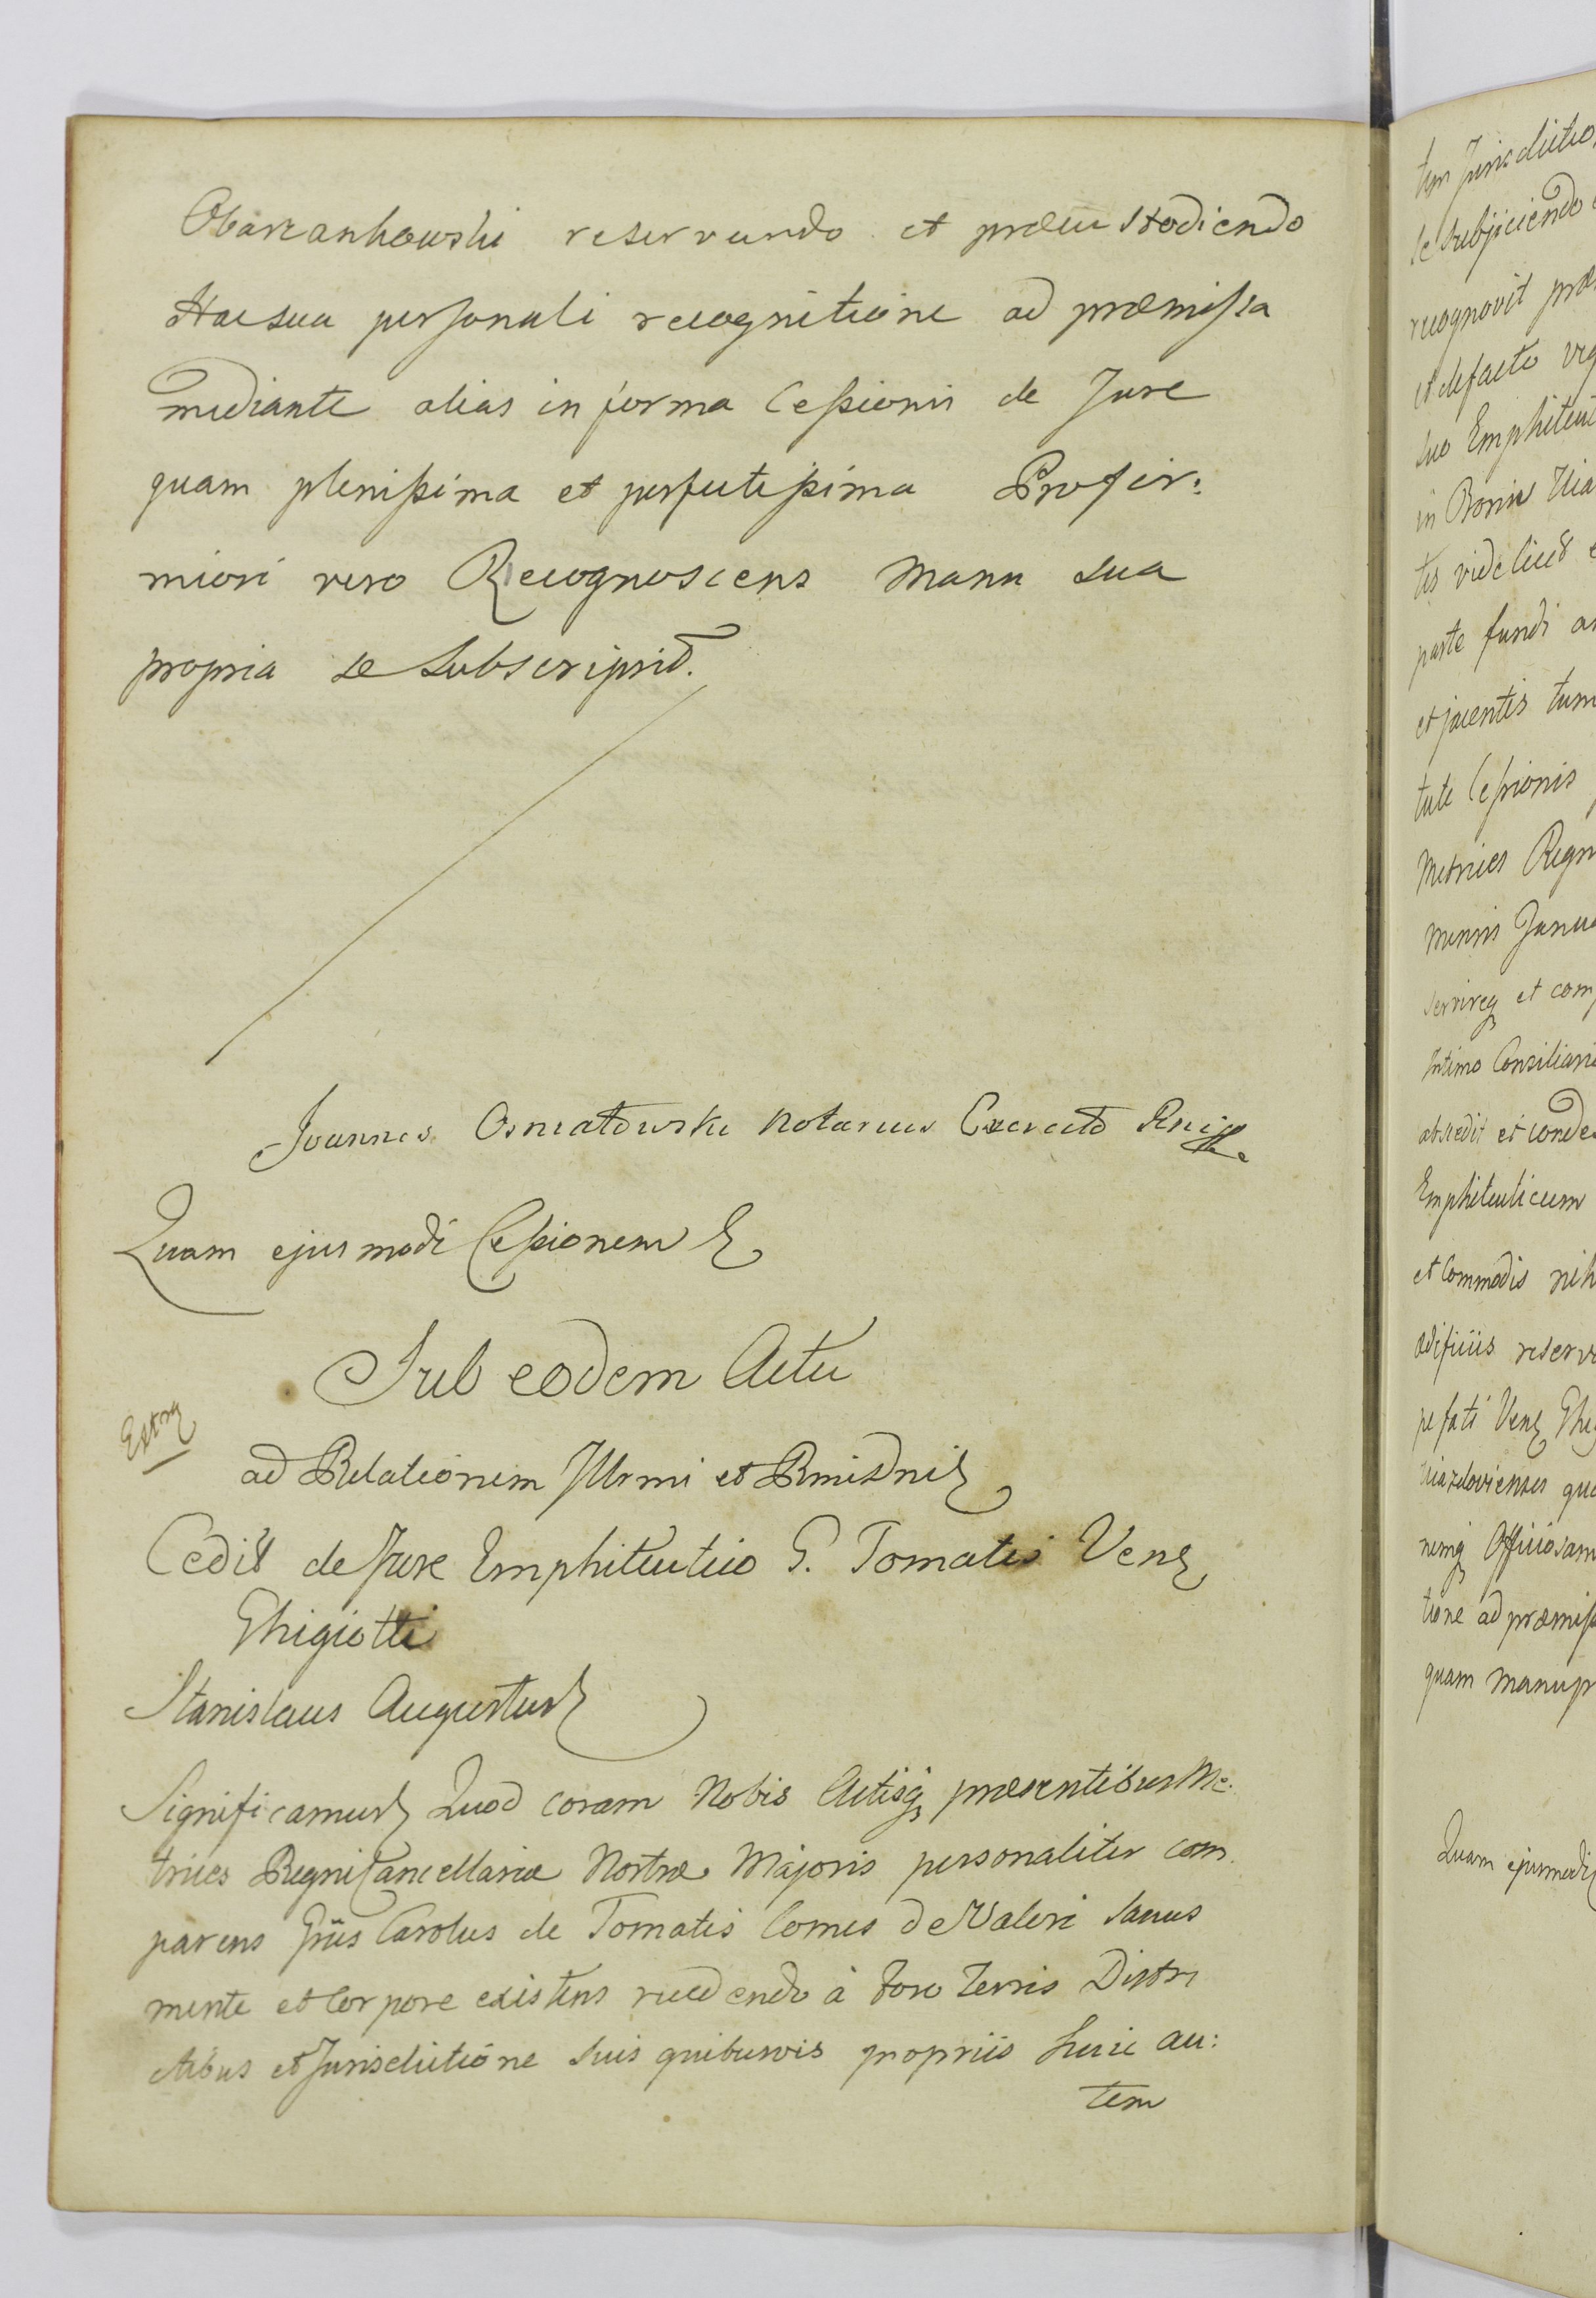 Obarzankowski reservando et præcustodiendo
Hac sua personali recognitione ad præmissa
mediante alias in forma Cessionis de Jure
quam plenissima et perfectissima Profir:
miori vero Recognoscens manu sua
propria se subscripsit.
Joannes notarius
Quam ejusmodi Cessionem &
Sub eodem Actu
ad Relationem Illrmi et Rmi Dni &
Cedit de Jure Emphiteutico G. Tomatis Ven&
Ghigiotti
Stanislaus Augustus &
Significamus & Quod coram Nobis Actisq præsentibus Me:
trices Regni Cancellariæ Nostræ Majoris personaliter com
parens Gñs Carolus de Tomatis Comes de Valeri sanus
mente et Corpore existens recedendo à foro Terris Distri
ctibus et Jurisdictione suis quibusvis propriis huic au:
tem
tem Jurisdictio
se subjiciendo
recognovit præ
et defacto
suo Emphiteut
in Bonis
tis videlicet
parte fundi
et jacentis tum
tute Cessionis
Metrices Regn
mensis Janua
et com
Intimo Consiliario
et conde
Emphiteuticum
et Commodis nih
ædificiis reserv
Ven& Ghi
Uiazdovienses qu
nemq Officiosam
tione ad præmiss
quam manu pr
Quam ejusmodi